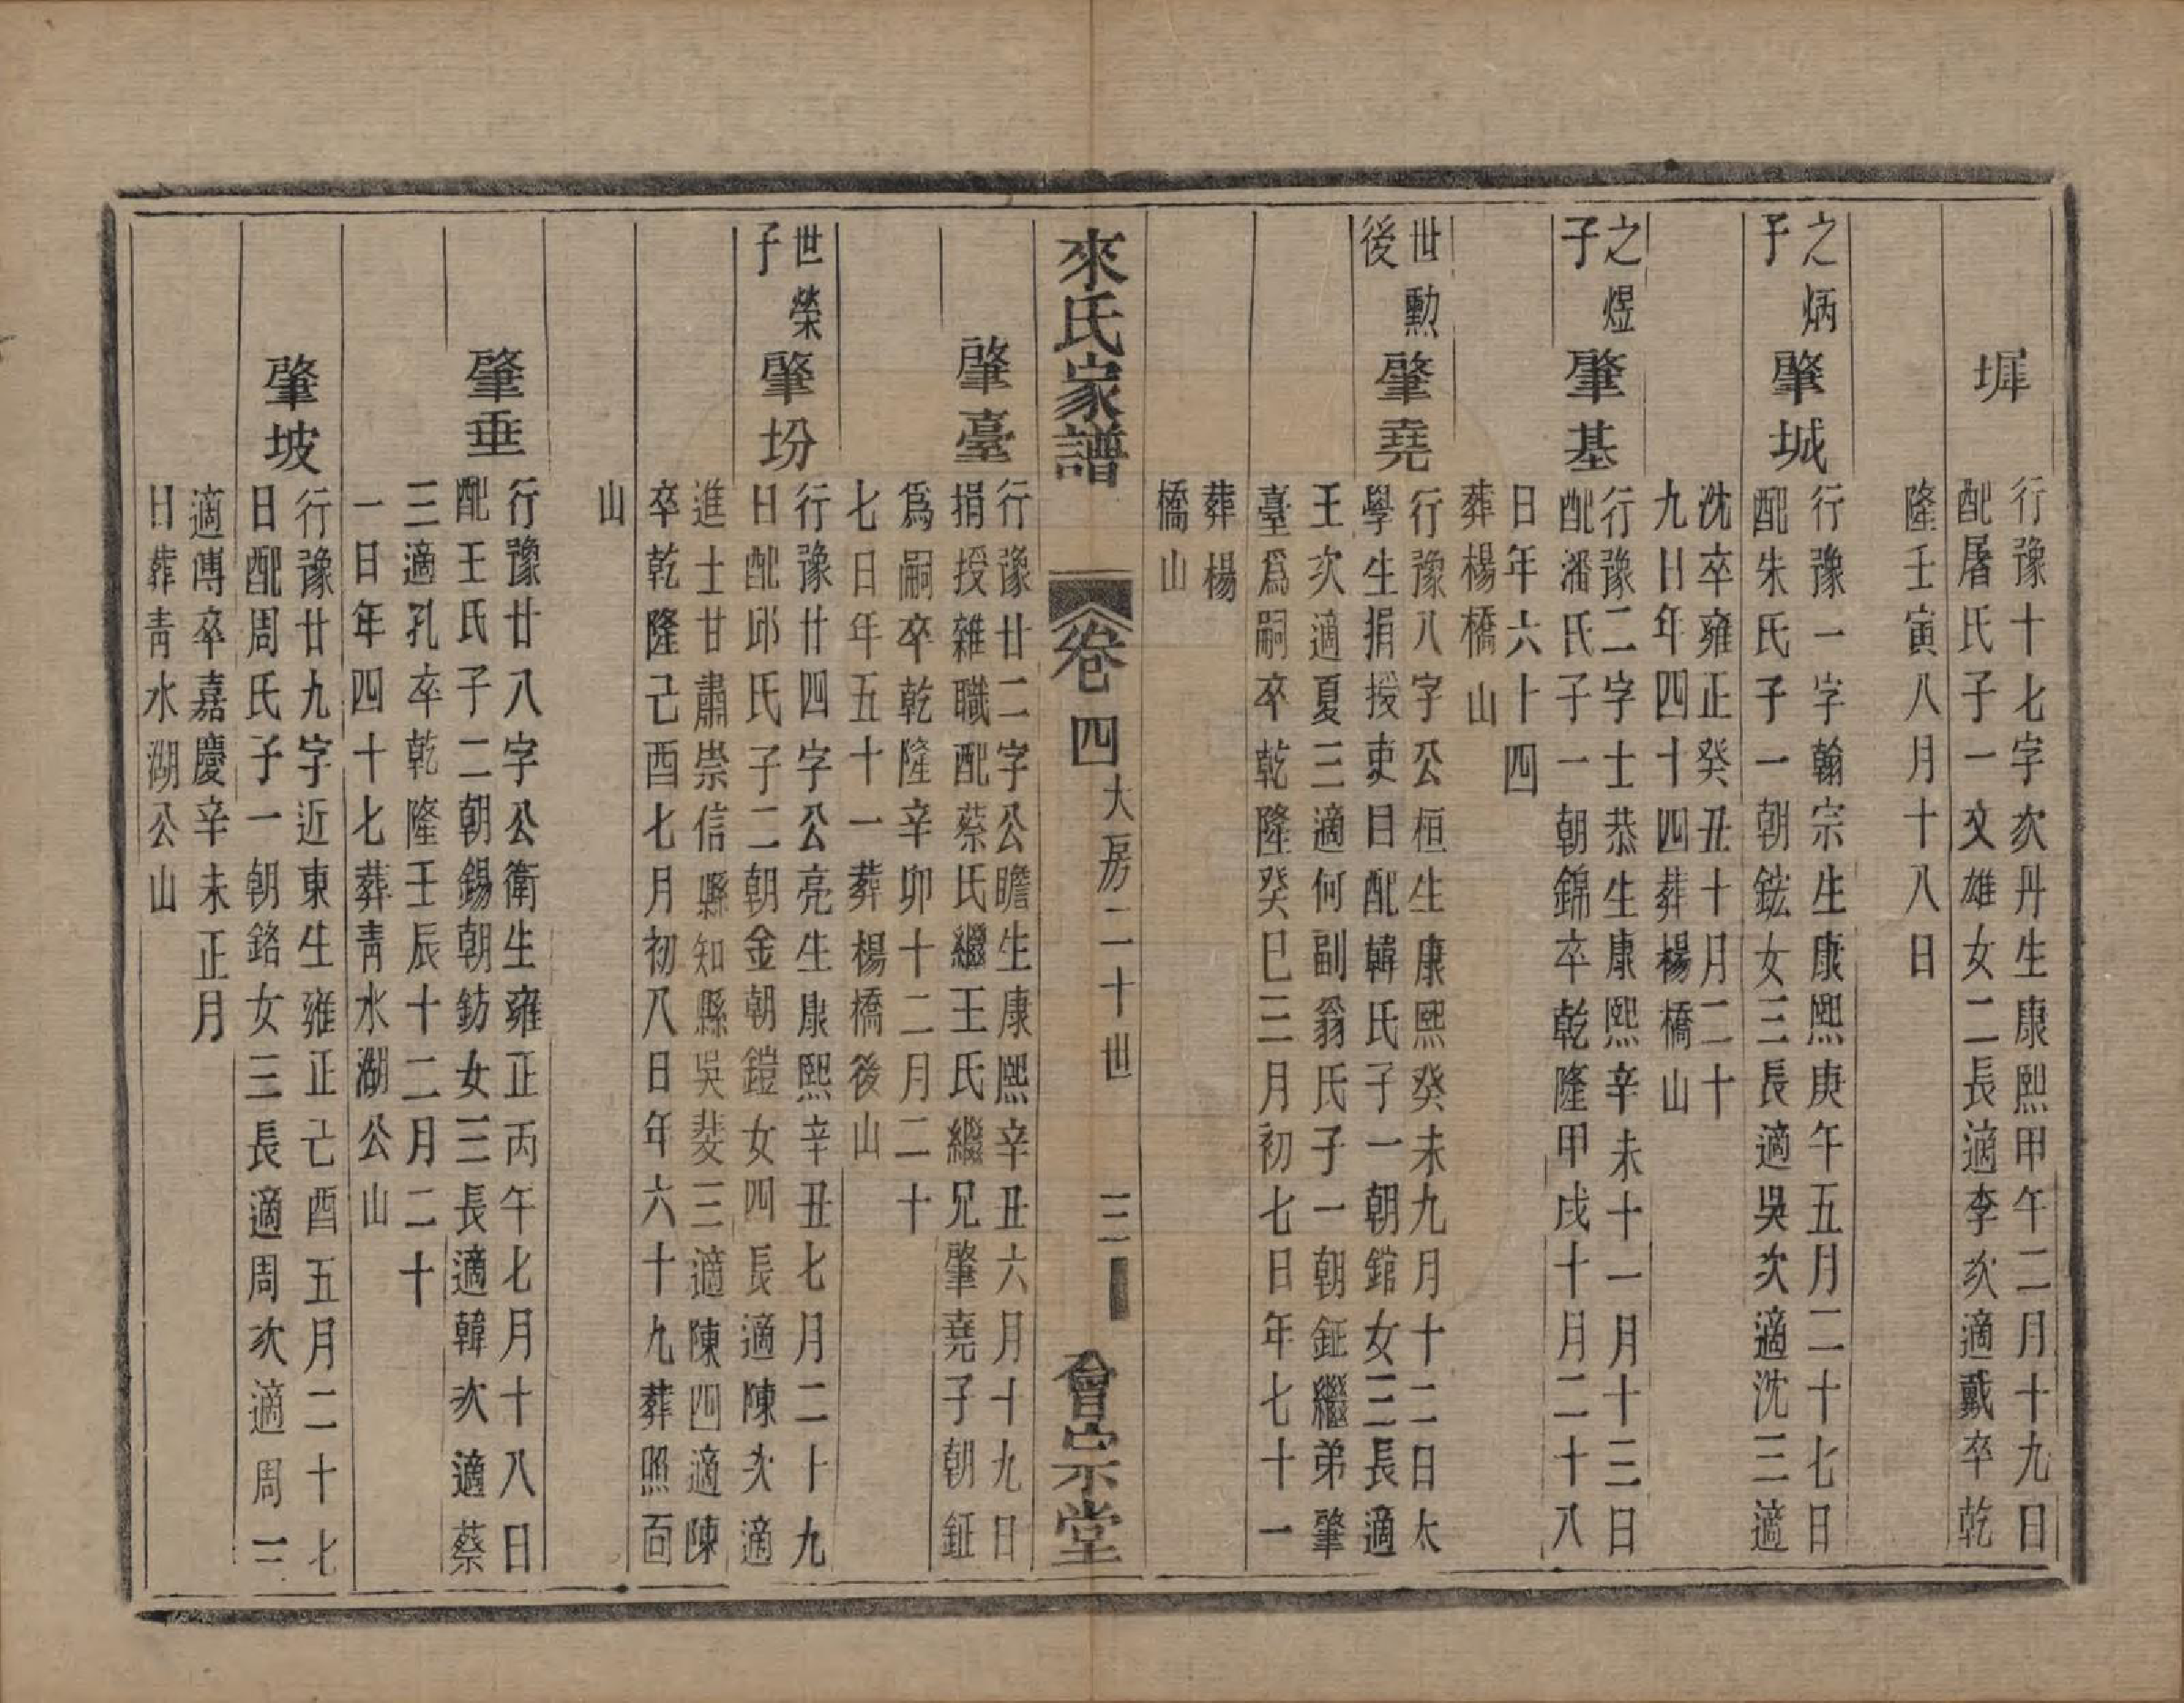 墀
行豫十七字次丹生康熙甲午二月十九日
配屠氏子一文雄女二長適李次適戴卒乾
隆壬寅八月十八日
之炳
子
肇城
行豫一字翰宗生康熙庚午五月二十七日
配朱氏子一朝鋐女三長適吳次適沈三適
沈卒雍正癸丑十月二十
九日年四十四葬楊橋山
之煜
子
肇基
行豫二字士恭生康熙辛未十一月十三日
配潘氏子一朝錦卒乾隆甲戌十月二十八
日年六十四
葬楊橋山
世勲
後
肇堯
行豫八字公桓生康熙癸未九月十二日太
學生捐授吏目配韓氏子一朝錧女三長適
王次適夏三適何副翁氏子一朝鉦繼弟肇
臺爲嗣卒乾隆癸巳三月初七日年七十一
葬楊
橋山
來氏家譜
卷四
大房二十世
三
會宗堂
肇臺
行豫廿二字公瞻生康熙辛丑六月十九日
捐授雜職配蔡氏繼王氏繼兄肇堯子朝鉦
爲嗣卒乾隆辛卯十二月二十
七日年五十一葬楊橋後山
世榮
子
肇坋
行豫廿四字公亮生康熙辛丑七月二十九
日配邱氏子二朝金朝鎧女四長適陳次適
進士甘肅崇信縣知縣吳斐三適陳四適陳
卒乾隆己酉七月初八日年六十九葬照面
山
肇垂
行豫廿八字公衛生雍正丙午七月十八日
配王氏子二朝錫朝鈁女三長適韓次適蔡
三適孔卒乾隆壬辰十二月二十
一日年四十七葬青水湖公山
肇坡
行豫廿九字近東生雍正己酉五月二十七
日配周氏子一朝鉻女三長適周次適周三
適傅卒嘉慶辛未正月
日葬青水湖公山